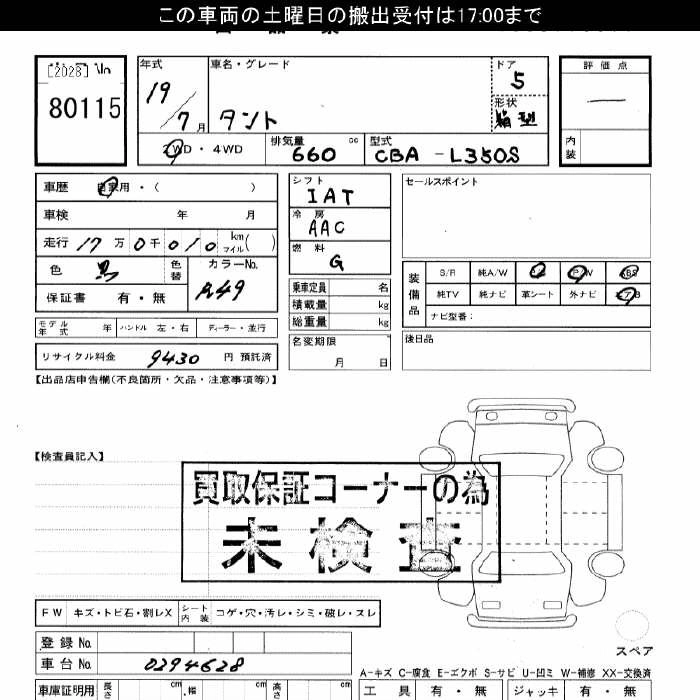 この車両の土曜日の搬出受付は17:00まで
[2028] No
80115
年式 車名・グレード ドア 評価点
19/7月 タント 5
形状 箱型
2WD・4WD 排気量 660 cc 型式 CBA-L350S
内装
車歴 自家用・( )
車検 年 月
走行 17万0千010 km マイル( )
色 黒 色替 カラーNo. A49
保証書 有・無
モデル年式 年 ハンドル 左・右 ディーラー・並行
リサイクル料金 9430 円 預託済
シフト IAT
冷房 AAC
燃料 G
乗車定員 名
積載量 kg
総重量 kg
名変期限
月 日
セールスポイント
装備品 S/R 純A/W P/S P/W ABS
純TV 純ナビ 革シート 外ナビ エアB
ナビ型番:
後日品
【出品店申告欄(不良箇所・欠品・注意事項等)】
【検査員記入】
買取保証コーナーの為
未検査
FW キズ・トビ石・割レX シート内装 コゲ・穴・汚レ・シミ・破レ・スレ
登録No.
車台No. 0294628
スペア
A-キズ C-腐食 E-エクボ S-サビ U-凹ミ W-補修 XX-交換済
車庫証明用 長さ cm 幅 cm 高さ cm 工具 有・無 ジャッキ 有・無